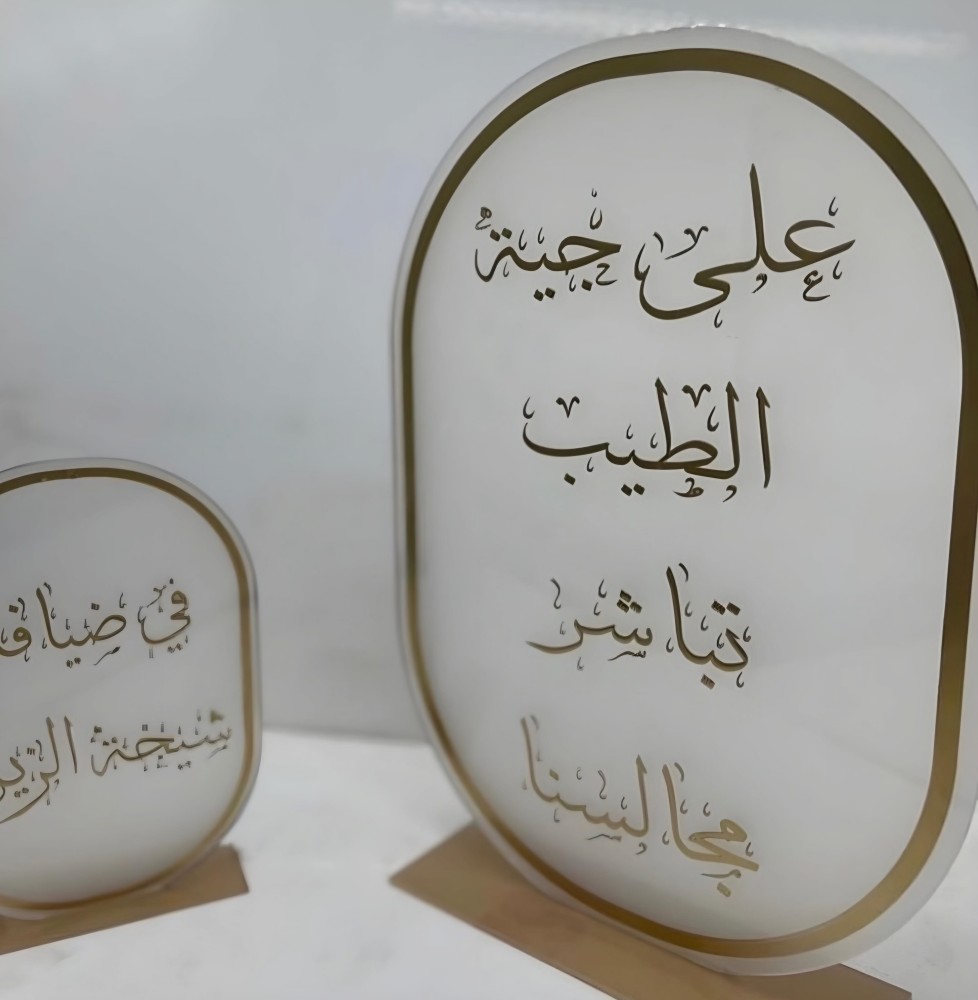 على جية
الطيب
تباشر
مجالسنا
في ضيافة
شيخة الزين